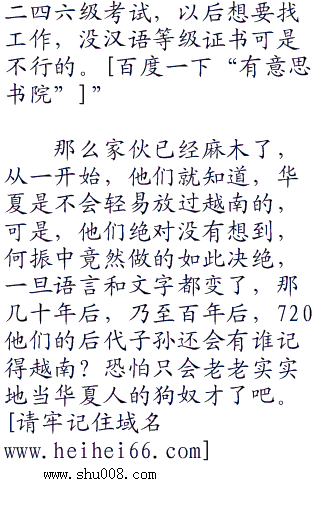 二四六级考试，以后想要找
工作，没汉语等级证书可是
不行的。[百度一下“有意思
书院”]”
那么家伙已经麻木了，
从一开始，他们就知道，华
夏是不会轻易放过越南的，
可是，他们绝对没有想到，
何振中竟然做的如此决绝，
一旦语言和文字都变了，那
几十年后，乃至百年后，720
他们的后代子孙还会有谁记
得越南？恐怕只会老老实实
地当华夏人的狗奴才了吧。
[请牢记住域名
www.heihei66.com]
www.shu008.com